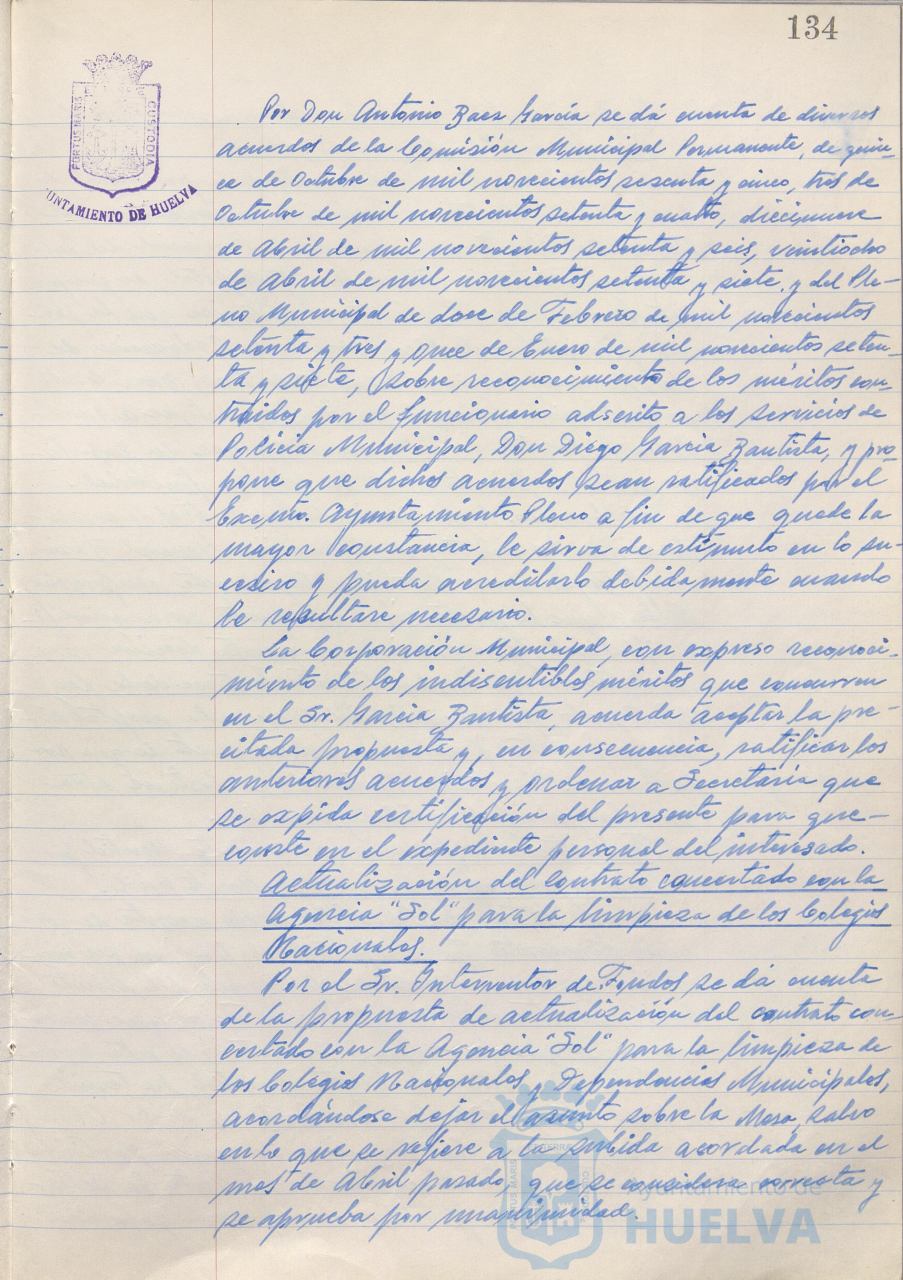 134
PORTUS MARIS
CUSTODIA
UNTAMIENTO DE HUELVA
Por Don Antonio Baez García se dá cuenta de diversos
acuerdos de la Comisión Municipal Permanente, de quin-
ce de Octubre de mil novecientos sesenta y cinco, tres de
Octubre de mil novecientos setenta y cuatro, diecinueve
de Abril de mil novecientos setenta y seis, veintiocho
de Abril de mil novecientos setenta y siete, y del Ple-
no Municipal de doce de Febrero de mil novecientos
setenta y tres y once de Enero de mil novecientos seten-
ta y siete, sobre reconocimiento de los méritos con-
traidos por el funcionario adscrito a los servicios de
Policía Municipal, Don Diego García Bautista, y pro-
pone que dichos acuerdos sean ratificados por el
Excmo. Ayuntamiento Pleno a fin de que quede la
mayor constancia, le sirva de estímulo en lo su-
cesivo y pueda acreditarlo debidamente cuando
le resultare necesario.
La Corporación Municipal, con expreso reconoci-
miento de los indiscutibles méritos que concurren
en el Sr. García Bautista, acuerda aceptar la pre-
citada propuesta y, en consecuencia, ratificar los
anteriores acuerdos y ordenar a Secretaría que
se expida certificación del presente para que-
conste en el expediente personal del interesado.
Actualización del contrato concertado con la
Agencia "Sol" para la limpieza de los Colegios
Nacionales.
Por el Sr. Interventor de Fondos se dá cuenta
de la propuesta de actualización del contrato con-
certado con la Agencia "Sol" para la limpieza de
los Colegios Nacionales y Dependencias Municipales,
acordándose dejar el asunto sobre la Mesa, salvo
en lo que se refiere a la subida acordada en el
mes de Abril pasado, que se considera correcta y
se aprueba por unanimidad.
Ayuntamiento de
HUELVA